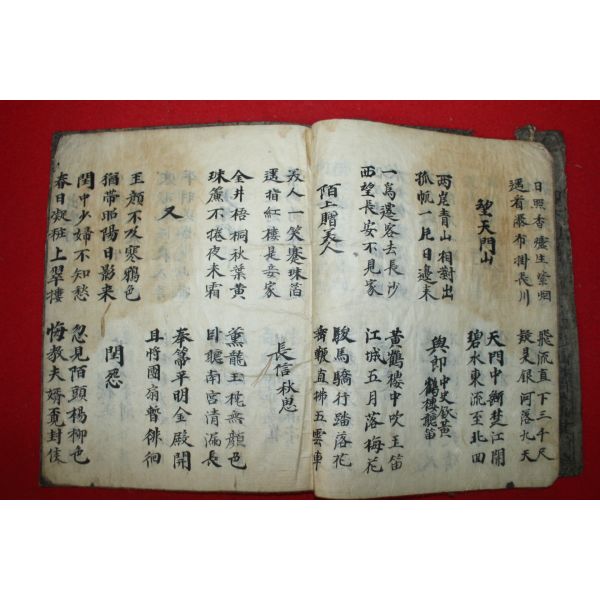 日照香爐生紫烟
遙看瀑布掛長川
飛流直下三千尺
疑是銀河落九天
望天門山
天門中斷楚江開
碧水東流至北回
兩岸青山相對出
孤帆一片日邊來
與郎中史欽黃
鶴樓聽笛
一爲遷客去長沙
西望長安不見家
黃鶴樓中吹玉笛
江城五月落梅花
陌上贈美人
駿馬驕行踏落花
垂鞭直拂五雲車
美人一笑褰珠箔
遙指紅樓是妾家
長信秋思
金井梧桐秋葉黃
珠簾不捲夜來霜
薰籠玉枕無顏色
臥聽南宮清漏長
又
奉箒平明金殿開
且將團扇暫徘徊
玉顏不及寒鴉色
猶帶昭陽日影來
閨怨
閨中少婦不知愁
春日凝粧上翠樓
忽見陌頭楊柳色
悔教夫婿覓封侯